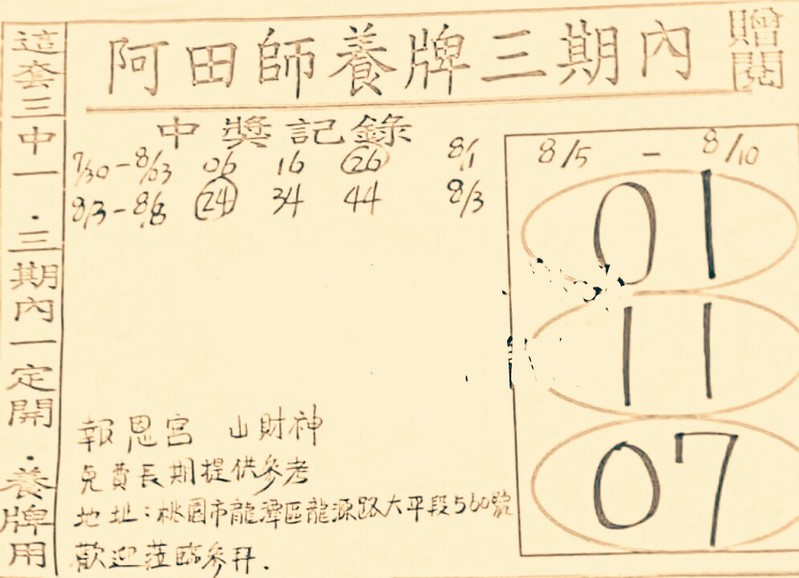 阿田師養牌三期內
贈閱
這套三中一．三期內一定開．養牌用
中獎記錄
7/30-8/03 06 16 26 8/1
8/3-8/8 24 34 44 8/3
8/5 - 8/10
01
11
07
報恩宮 山財神
免費長期提供參考
地址：桃園市龍潭區龍源路大平段560號
歡迎蒞臨參拜.